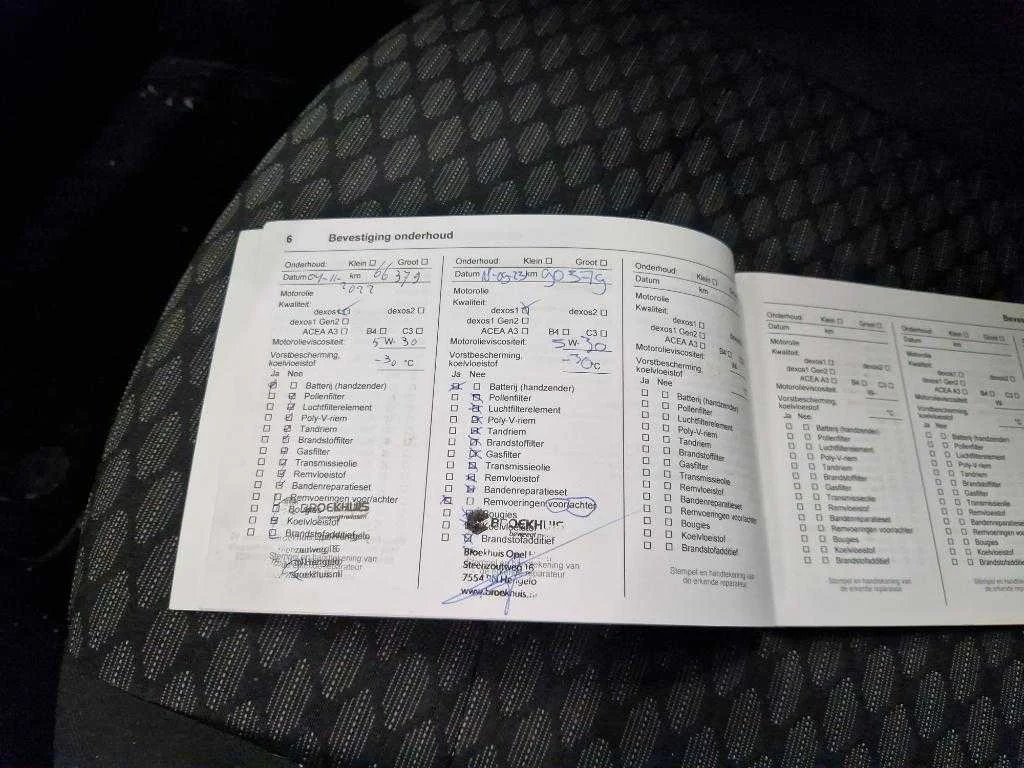 6 Bevestiging onderhoud
Onderhoud: Klein Groot
Datum 04-11-2022 km 66379
Motorolie
Kwaliteit:
dexos1 dexos2
dexos1 Gen2
ACEA A3 B4 C3
Motorolieviscositeit: 5 W- 30
Vorstbescherming,
koelvloeistof -30 °C
Ja Nee
Batterij (handzender)
Pollenfilter
Luchtfilterelement
Poly-V-riem
Tandriem
Brandstoffilter
Gasfilter
Transmissieolie
Remvloeistof
Bandenreparatieset
Remvoeringen voor/achter
BROEKHUIS
Bougies
Koelvloeistof
Brandstofadditief
Hengelo
broekhuis.nl
Onderhoud: Klein Groot
Datum km 90379
Motorolie
Kwaliteit:
dexos1 dexos2
dexos1 Gen2
ACEA A3 B4 C3
Motorolieviscositeit: 5 W- 30
Vorstbescherming,
koelvloeistof -30 °C
Ja Nee
Batterij (handzender)
Pollenfilter
Luchtfilterelement
Poly-V-riem
Tandriem
Brandstoffilter
Gasfilter
Transmissieolie
Remvloeistof
Bandenreparatieset
Remvoeringen voor/achter
Bougies
BROEKHUIS
Koelvloeistof
Brandstofadditief
Broekhuis Opel
Steenzoutweg 16
7554 Hengelo
www.broekhuis.nl
Onderhoud: Klein
Datum km
Motorolie
Kwaliteit:
dexos1
dexos1 Gen2
ACEA A3 B4
Motorolieviscositeit: W-
Vorstbescherming,
koelvloeistof
Ja Nee
Batterij (handzender)
Pollenfilter
Luchtfilterelement
Poly-V-riem
Tandriem
Brandstoffilter
Gasfilter
Transmissieolie
Remvloeistof
Bandenreparatieset
Remvoeringen voor/achter
Bougies
Koelvloeistof
Brandstofadditief
Stempel en handtekening van
de erkende reparateur
Onderhoud: Klein Groot
Datum km
Motorolie
Kwaliteit:
dexos1
dexos1 Gen2
ACEA A3 B4 C3
Motorolieviscositeit: W-
Vorstbescherming,
koelvloeistof °C
Ja Nee
Batterij (handzender)
Pollenfilter
Luchtfilterelement
Poly-V-riem
Tandriem
Brandstoffilter
Gasfilter
Transmissieolie
Remvloeistof
Bandenreparatieset
Remvoeringen voor/achter
Bougies
Koelvloeistof
Brandstofadditief
Stempel en handtekening van
de erkende reparateur
Onderhoud: Klein
Datum km
Motorolie
Kwaliteit:
dexos1
dexos1 Gen2
ACEA A3 B4
Motorolieviscositeit:
Vorstbescherming,
koelvloeistof
Ja Nee
Batterij (handzender)
Pollenfilter
Luchtfilterelement
Poly-V-riem
Tandriem
Brandstoffilter
Gasfilter
Transmissieolie
Remvloeistof
Bougies
Koelvloeistof
Brandstofadditief